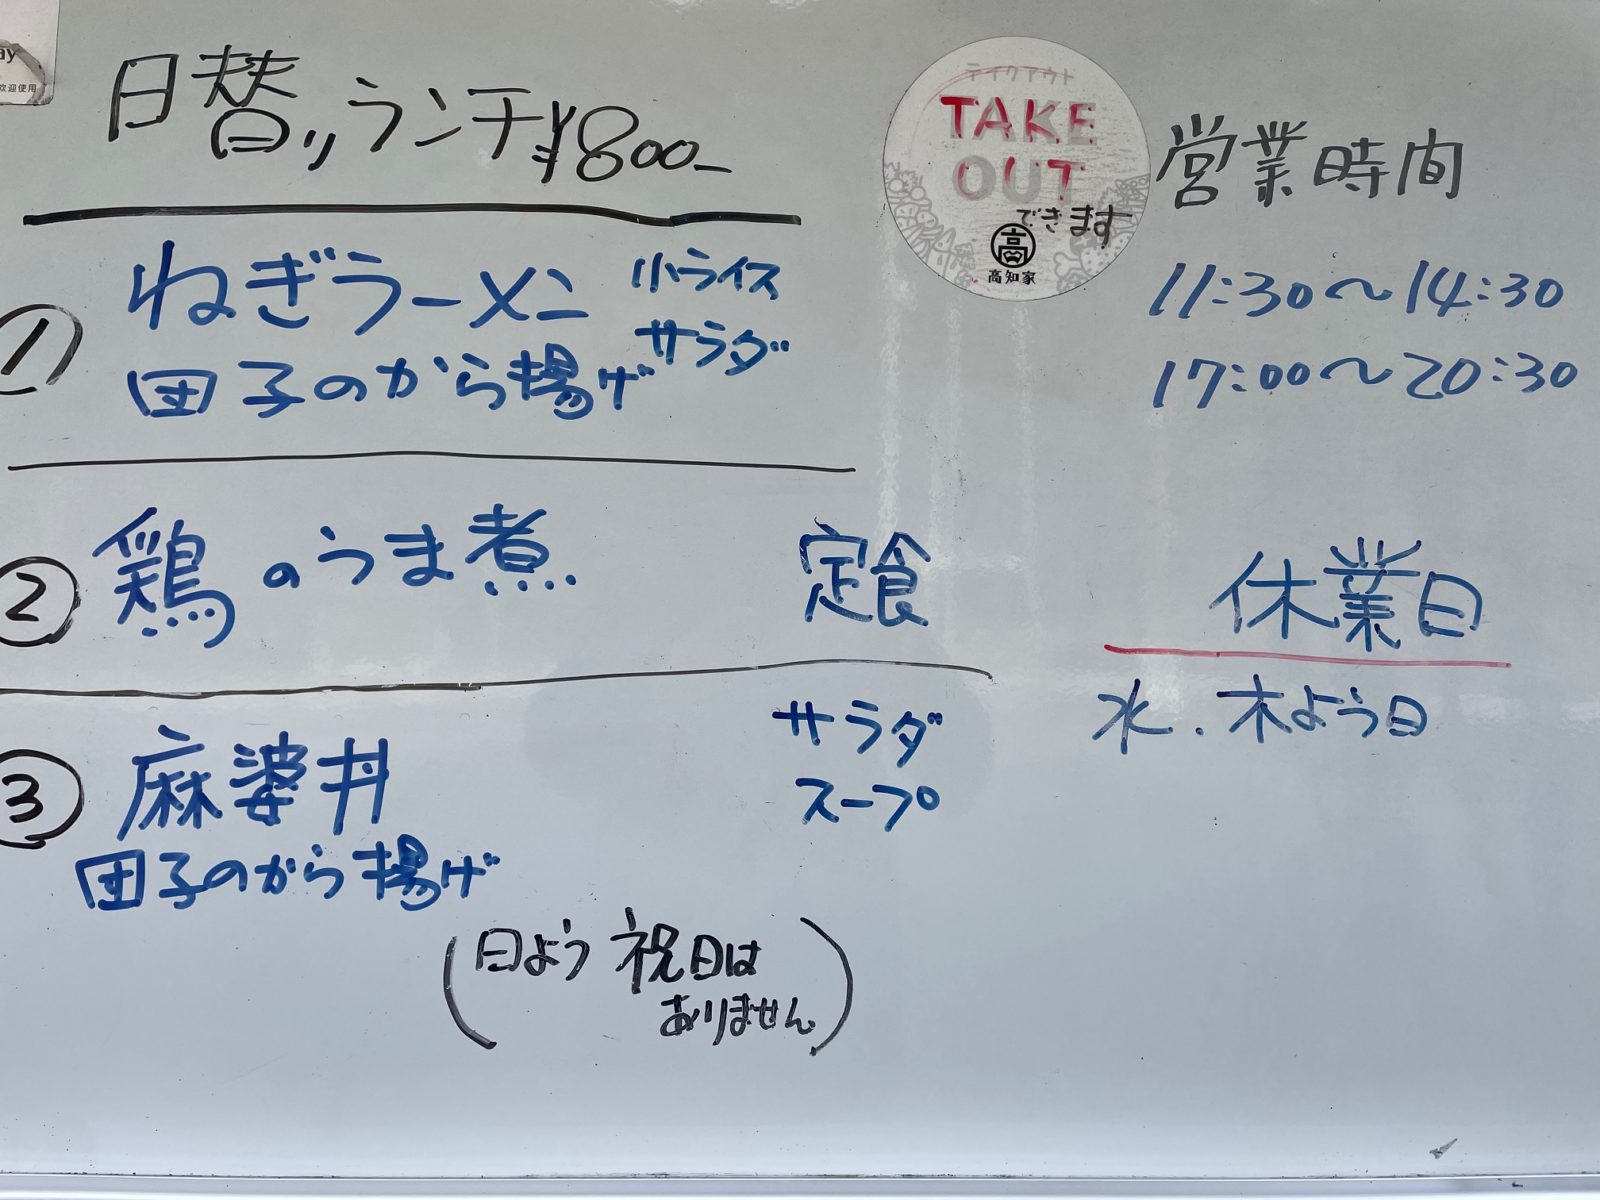 日替りランチ¥800-
① ねぎラーメン 小ライス
団子のから揚げ サラダ
② 鶏のうま煮 定食
③ 麻婆丼 サラダ
スープ
団子のから揚げ
(日よう 祝日は
ありません)
テイクアウト
TAKE
OUT
できます
高
高知家
営業時間
11:30〜14:30
17:00〜20:30
休業日
水.木よう日
ay
欢迎使用